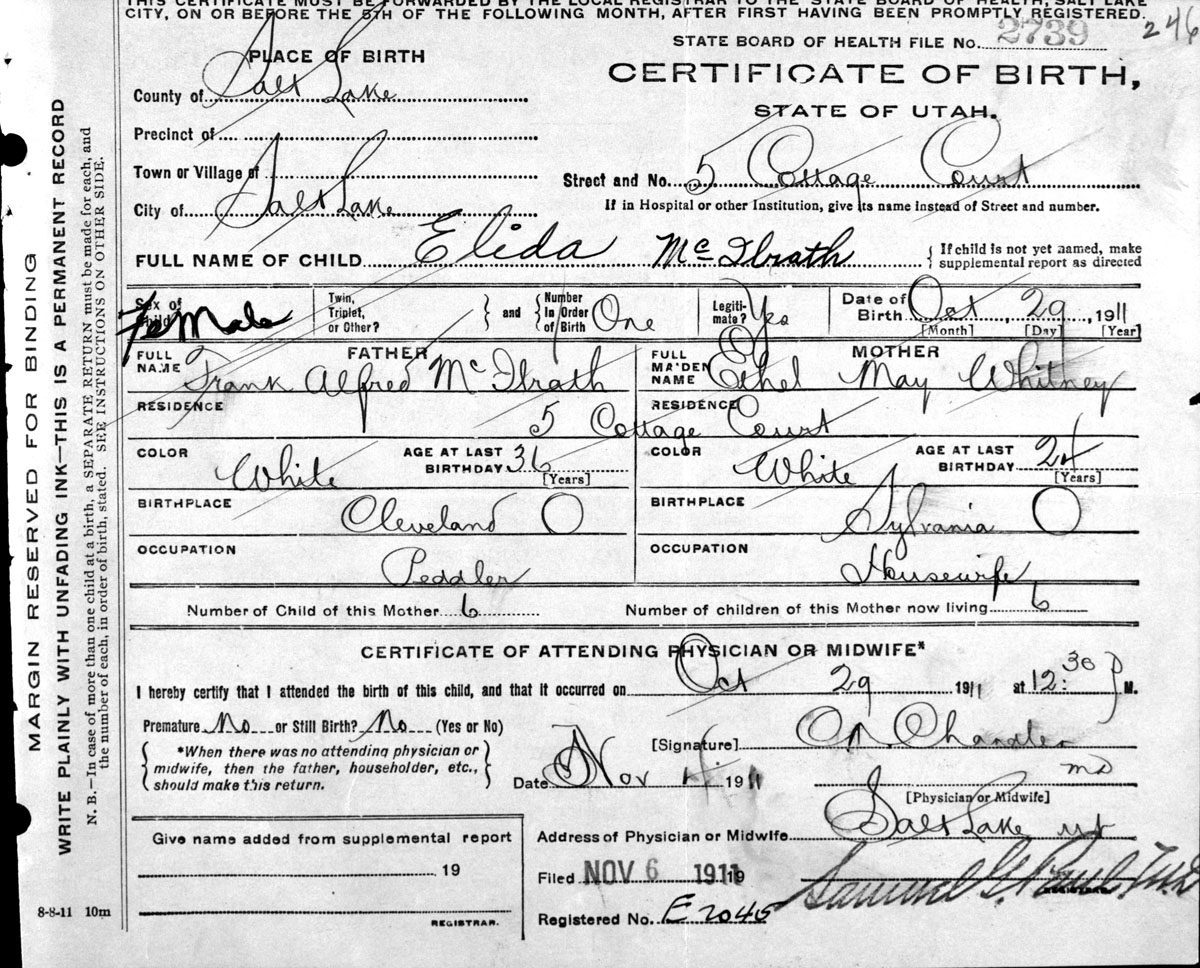 THIS CERTIFICATE MUST BE FORWARDED BY THE LOCAL REGISTRAR TO THE STATE BOARD OF HEALTH, SALT LAKE
CITY, ON OR BEFORE THE 5TH OF THE FOLLOWING MONTH, AFTER FIRST HAVING BEEN PROMPTLY REGISTERED.
246
STATE BOARD OF HEALTH FILE No. 2739
PLACE OF BIRTH
CERTIFICATE OF BIRTH,
County of Salt Lake
STATE OF UTAH.
Precinct of
Town or Village of
Street and No. 5 Cottage Court
City of Salt Lake
If in Hospital or other Institution, give its name instead of Street and number.
FULL NAME OF CHILD Elida McIlrath { If child is not yet named, make
supplemental report as directed
Sex of Child Female
Twin, Triplet, or Other? } and { Number In Order of Birth One
Legiti-mate? Yes
Date of Birth Oct 29, 1911
[Month] [Day] [Year]
FATHER
FULL NAME Frank Alfred McIlrath
MOTHER
FULL MAIDEN NAME Ethel May Whitney
RESIDENCE
RESIDENCE
5 Cottage Court
COLOR White AGE AT LAST BIRTHDAY 36 [Years]
COLOR White AGE AT LAST BIRTHDAY 24 [Years]
BIRTHPLACE Cleveland O
BIRTHPLACE Sylvania O
OCCUPATION Peddler
OCCUPATION Housewife
Number of Child of this Mother 6 Number of children of this Mother now living 6
CERTIFICATE OF ATTENDING PHYSICIAN OR MIDWIFE*
I hereby certify that I attended the birth of this child, and that it occurred on Oct 29 1911 at 12:30 P M.
Premature No or Still Birth? No (Yes or No)
{ *When there was no attending physician or
midwife, then the father, householder, etc.,
should make this return. }
[Signature] Chandler
MD
Date Nov 1911
[Physician or Midwife]
Address of Physician or Midwife Salt Lake Ut
Give name added from supplemental report
19
REGISTRAR.
Filed NOV 6 1911 19
Samuel G. Paul, M.D.
REGISTRAR.
Registered No. E 2045
8-8-11 10m
MARGIN RESERVED FOR BINDING
WRITE PLAINLY WITH UNFADING INK—THIS IS A PERMANENT RECORD
N. B.—In case of more than one child at a birth, a SEPARATE RETURN must be made for each, and
the number of each, in order of birth, stated. SEE INSTRUCTIONS ON OTHER SIDE.